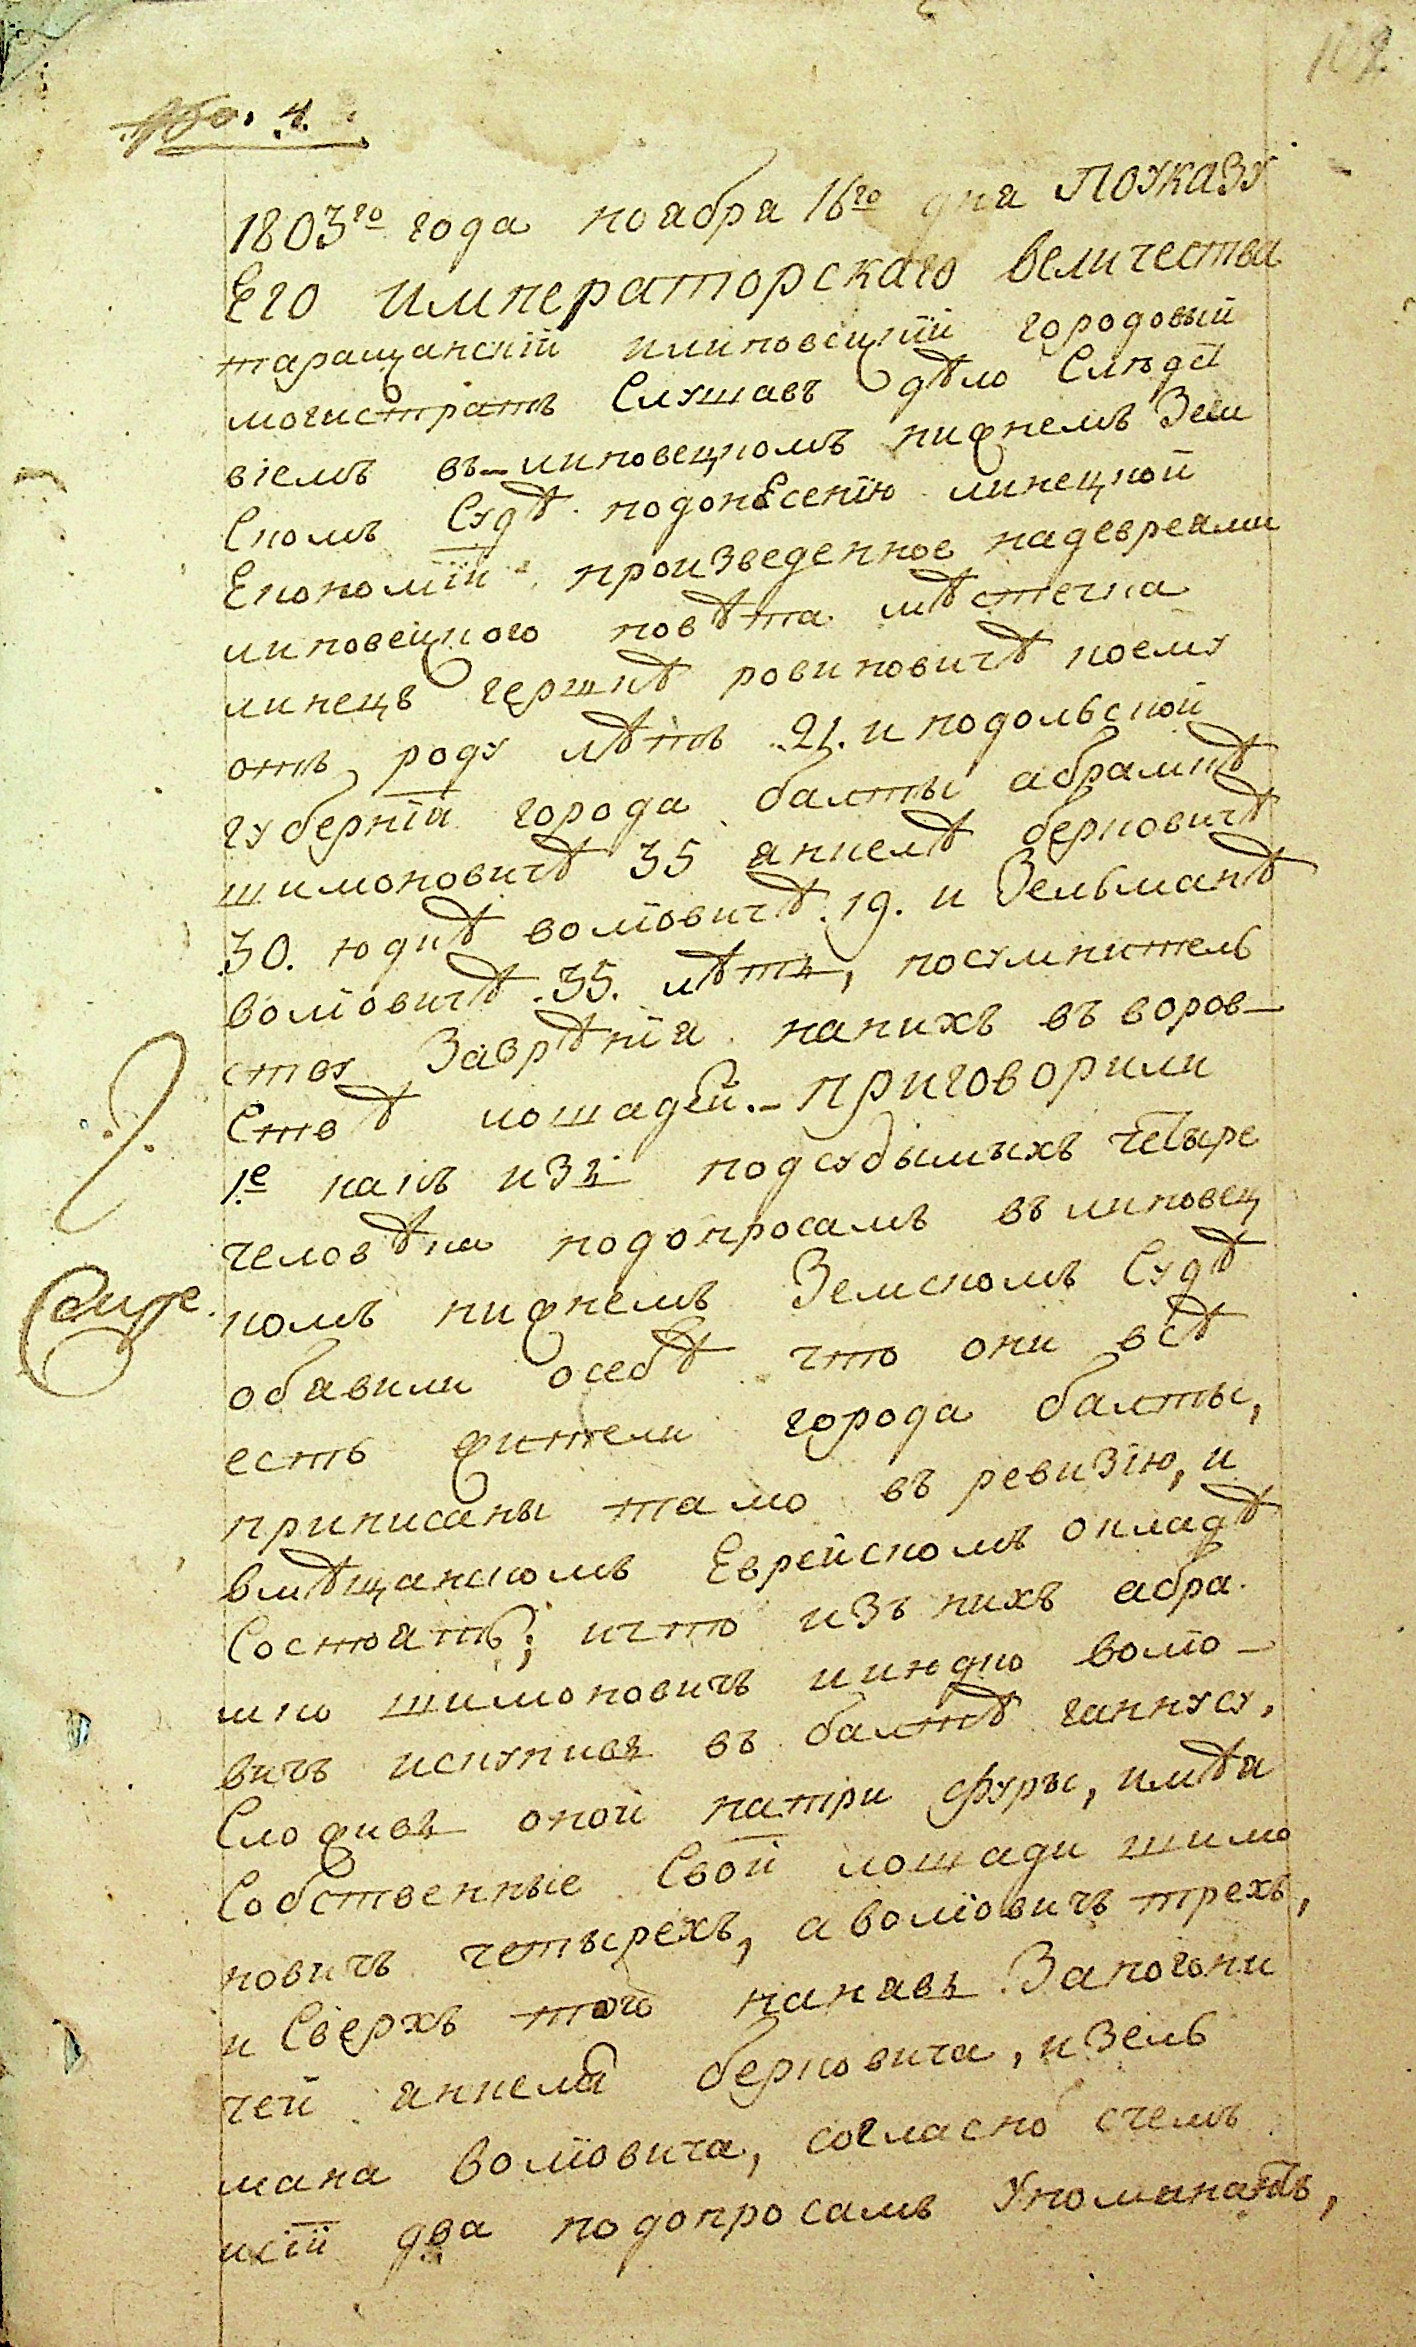 109
№. 4.
1803го года ноября 16го дня По указу
Его императорскаго величества
таращанскій илиповецкій городовый
могистратъ слушавъ дѣло слѣдст
віемъ въ липовецкомъ нижнемъ Зем
скомъ судѣ по донесенію линецкой
Економіи произведенное надевреями
липовецкого повѣта мѣстечка
линецъ гершкѣ ровиновичѣ коему
отъ роду лѣтъ 21. и подольской
губерніи города балты абрамкѣ
шимоновичѣ 35 янкелѣ берковичѣ
30. юдкѣ волїовичѣ. 19. и Зельманѣ
волїовичѣ. 35. лѣтъ, посумнитель
ству Заврѣнія нанихъ въ воров-
ствѣ лошадей.- приговорили
1.е какъ изъ подсудымыхъ четыре
человѣка подопросамъ въ липовец
комъ нижнемъ Земскомъ Судѣ
обявили особѣ что они всѣ
есть жители города балты,
приписаны тамо въ ревизію, и
вмѣщанскомъ Еврейскомъ окладѣ
Состоятъ; ичто изъ нихъ абра
мко шимоновичъ июдко волїо-
вичъ искупивъ въ балтѣ ганнусу,
Сложивъ оной натри фуры, имѣя
Собственные Свои лошади шимо
новичъ четырехъ, аволїовичъ трехъ,
и Сверхъ того нанявъ Запогони
чей янкеля берковича, изель
мана волїовича, согласно счемъ
исіи два подопросамъ упоминаютъ,